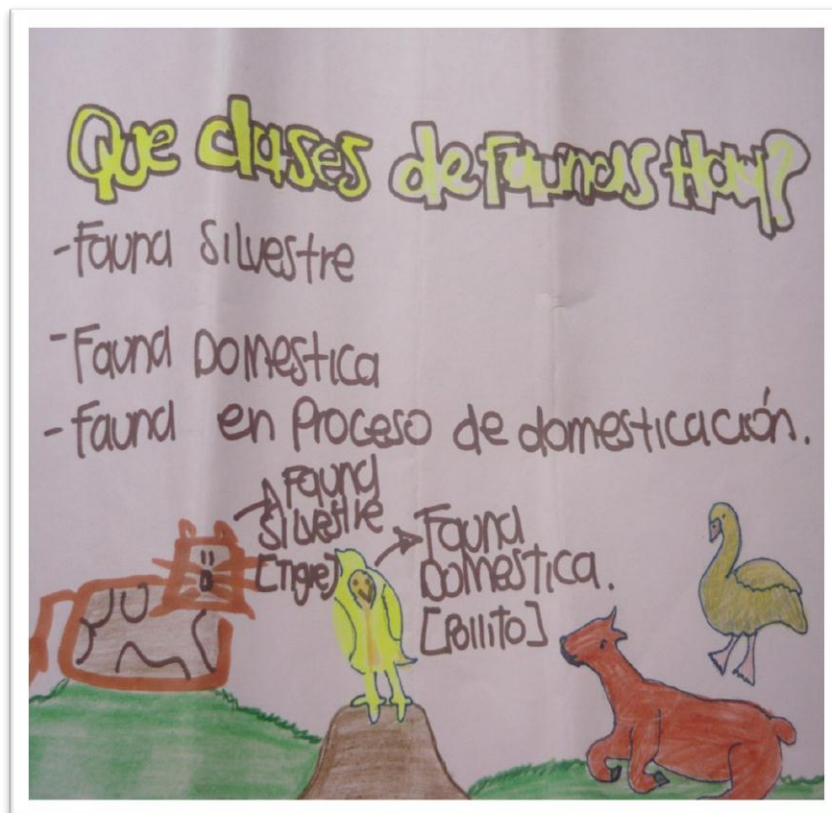 Que clases de Faunas Hay?
-Fauna Silvestre
-Fauna Domestica
-fauna en Proceso de domesticación.
Fauna
Silvestre
[Tigre]
Fauna
Domestica.
[Pollito]